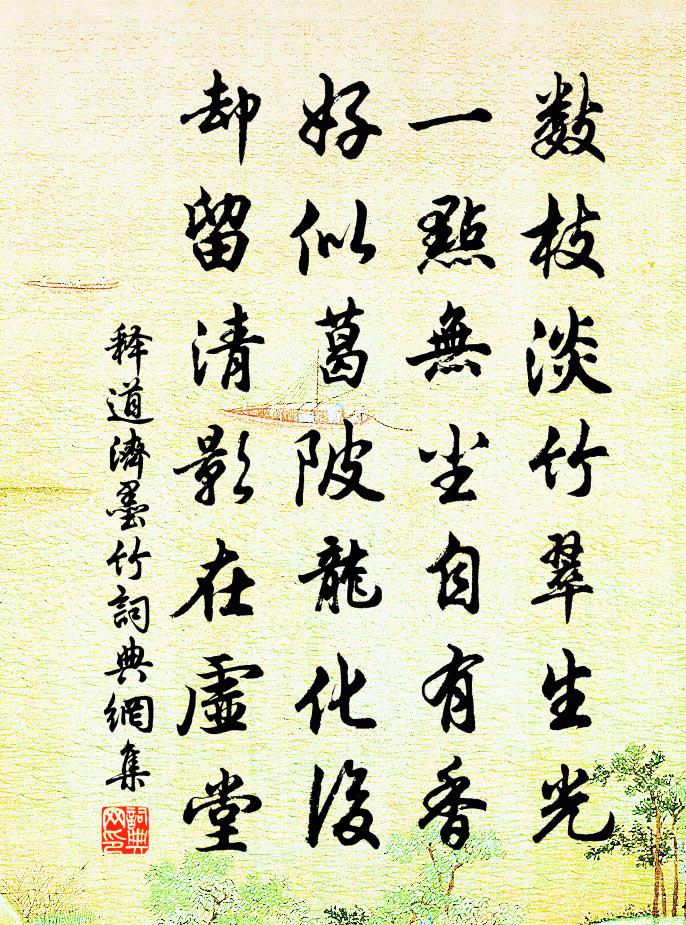 數枝淡竹翠生光
一點無塵自有香
好似葛陂龍化後
却留清影在虛堂
释道濟墨竹詞典網集
詞典网印